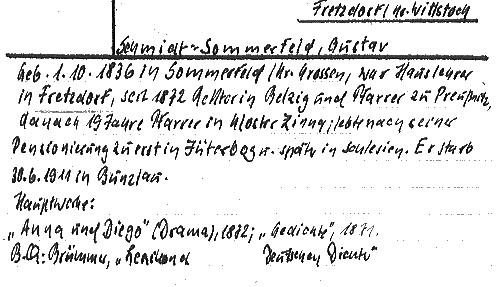 Fretzdorf/Kr. Wittstock
Schmidt-Sommerfeld, Gustav
Geb. 1.10.1836 in Sommerfeld/Kr. Crossen, war Hauslehrer
in Fretzdorf, seit 1872 Rektor in Belzig und Pfarrer zu Preußnitz,
danach 19 Jahre Pfarrer in Kloster Zinna; lebte nach seiner
Pensionierung zuerst in Jüterbog u. später in Schlesien. Er starb
30.6.1911 in Bunzlau.
Hauptwerke:
„Anna und Diego" (Drama), 1872; „Gedichte",
B.Q.: Brümmer, „Lexikon d Deutschen Dichter"